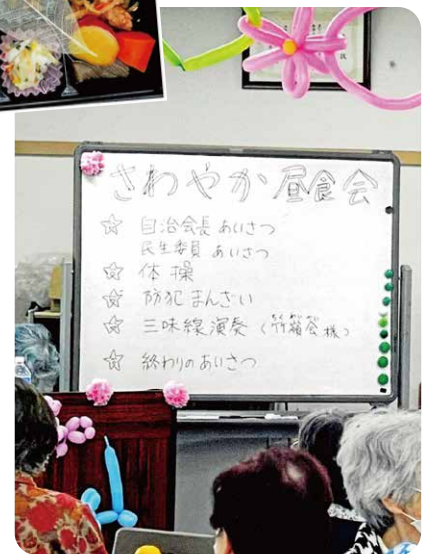 さわやか昼食会
☆ 自治会長 あいさつ
民生委員 あいさつ
☆ 体操
☆ 防犯まんざい
☆ 三味線演奏(竹 会様)
☆ 終わりのあいさつ